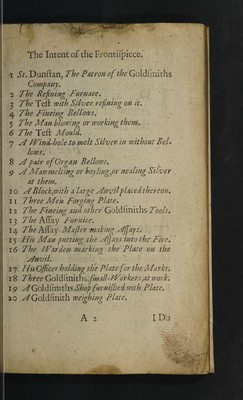 The Intent of the Frontispiece.
1 St. Dunstan, The Patron of the Goldsmiths
Company.
2 The Refining Furnace.
3 The Test with Silver refining on it.
4 The Fineing Bellows.
5 The Man blowing or working them.
6 The Test Mould.
7 A Wind-hole to melt Silver in without Bel-
lows.
8 A pair of Organ Bellows.
9 A Man melting or boyling, or nealing Silver
at them.
10 A Block, with a large Anvil placed thereon.
11 Three Men Forging Plate.
12 The Fineing and other Goldsmiths Tools.
13 The Assay Furnice.
14 The Assay-Master making Assays.
15 His Man putting the Assays into the Fire.
16 The Warden marking the Plate on the
Anvil.
17 His Officer holding the Plate for the Marks.
18 Three Goldsmiths, small-Workers, at work.
19 A Goldsmiths Shop furnished with Plate.
20 A Goldsmith weighing Plate.
A 2 I Do